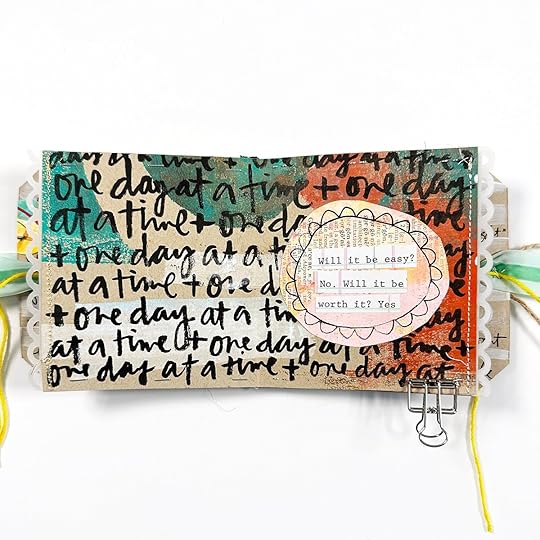 days at a time + one day at a time +
one day at a time + one day
at a time + one da
+ one day at a ti
at a time + one da
+ one day at a ti
at a time + one day at a time +
one day at a time + one day at
Will it be easy?
No. Will it be
worth it? Yes